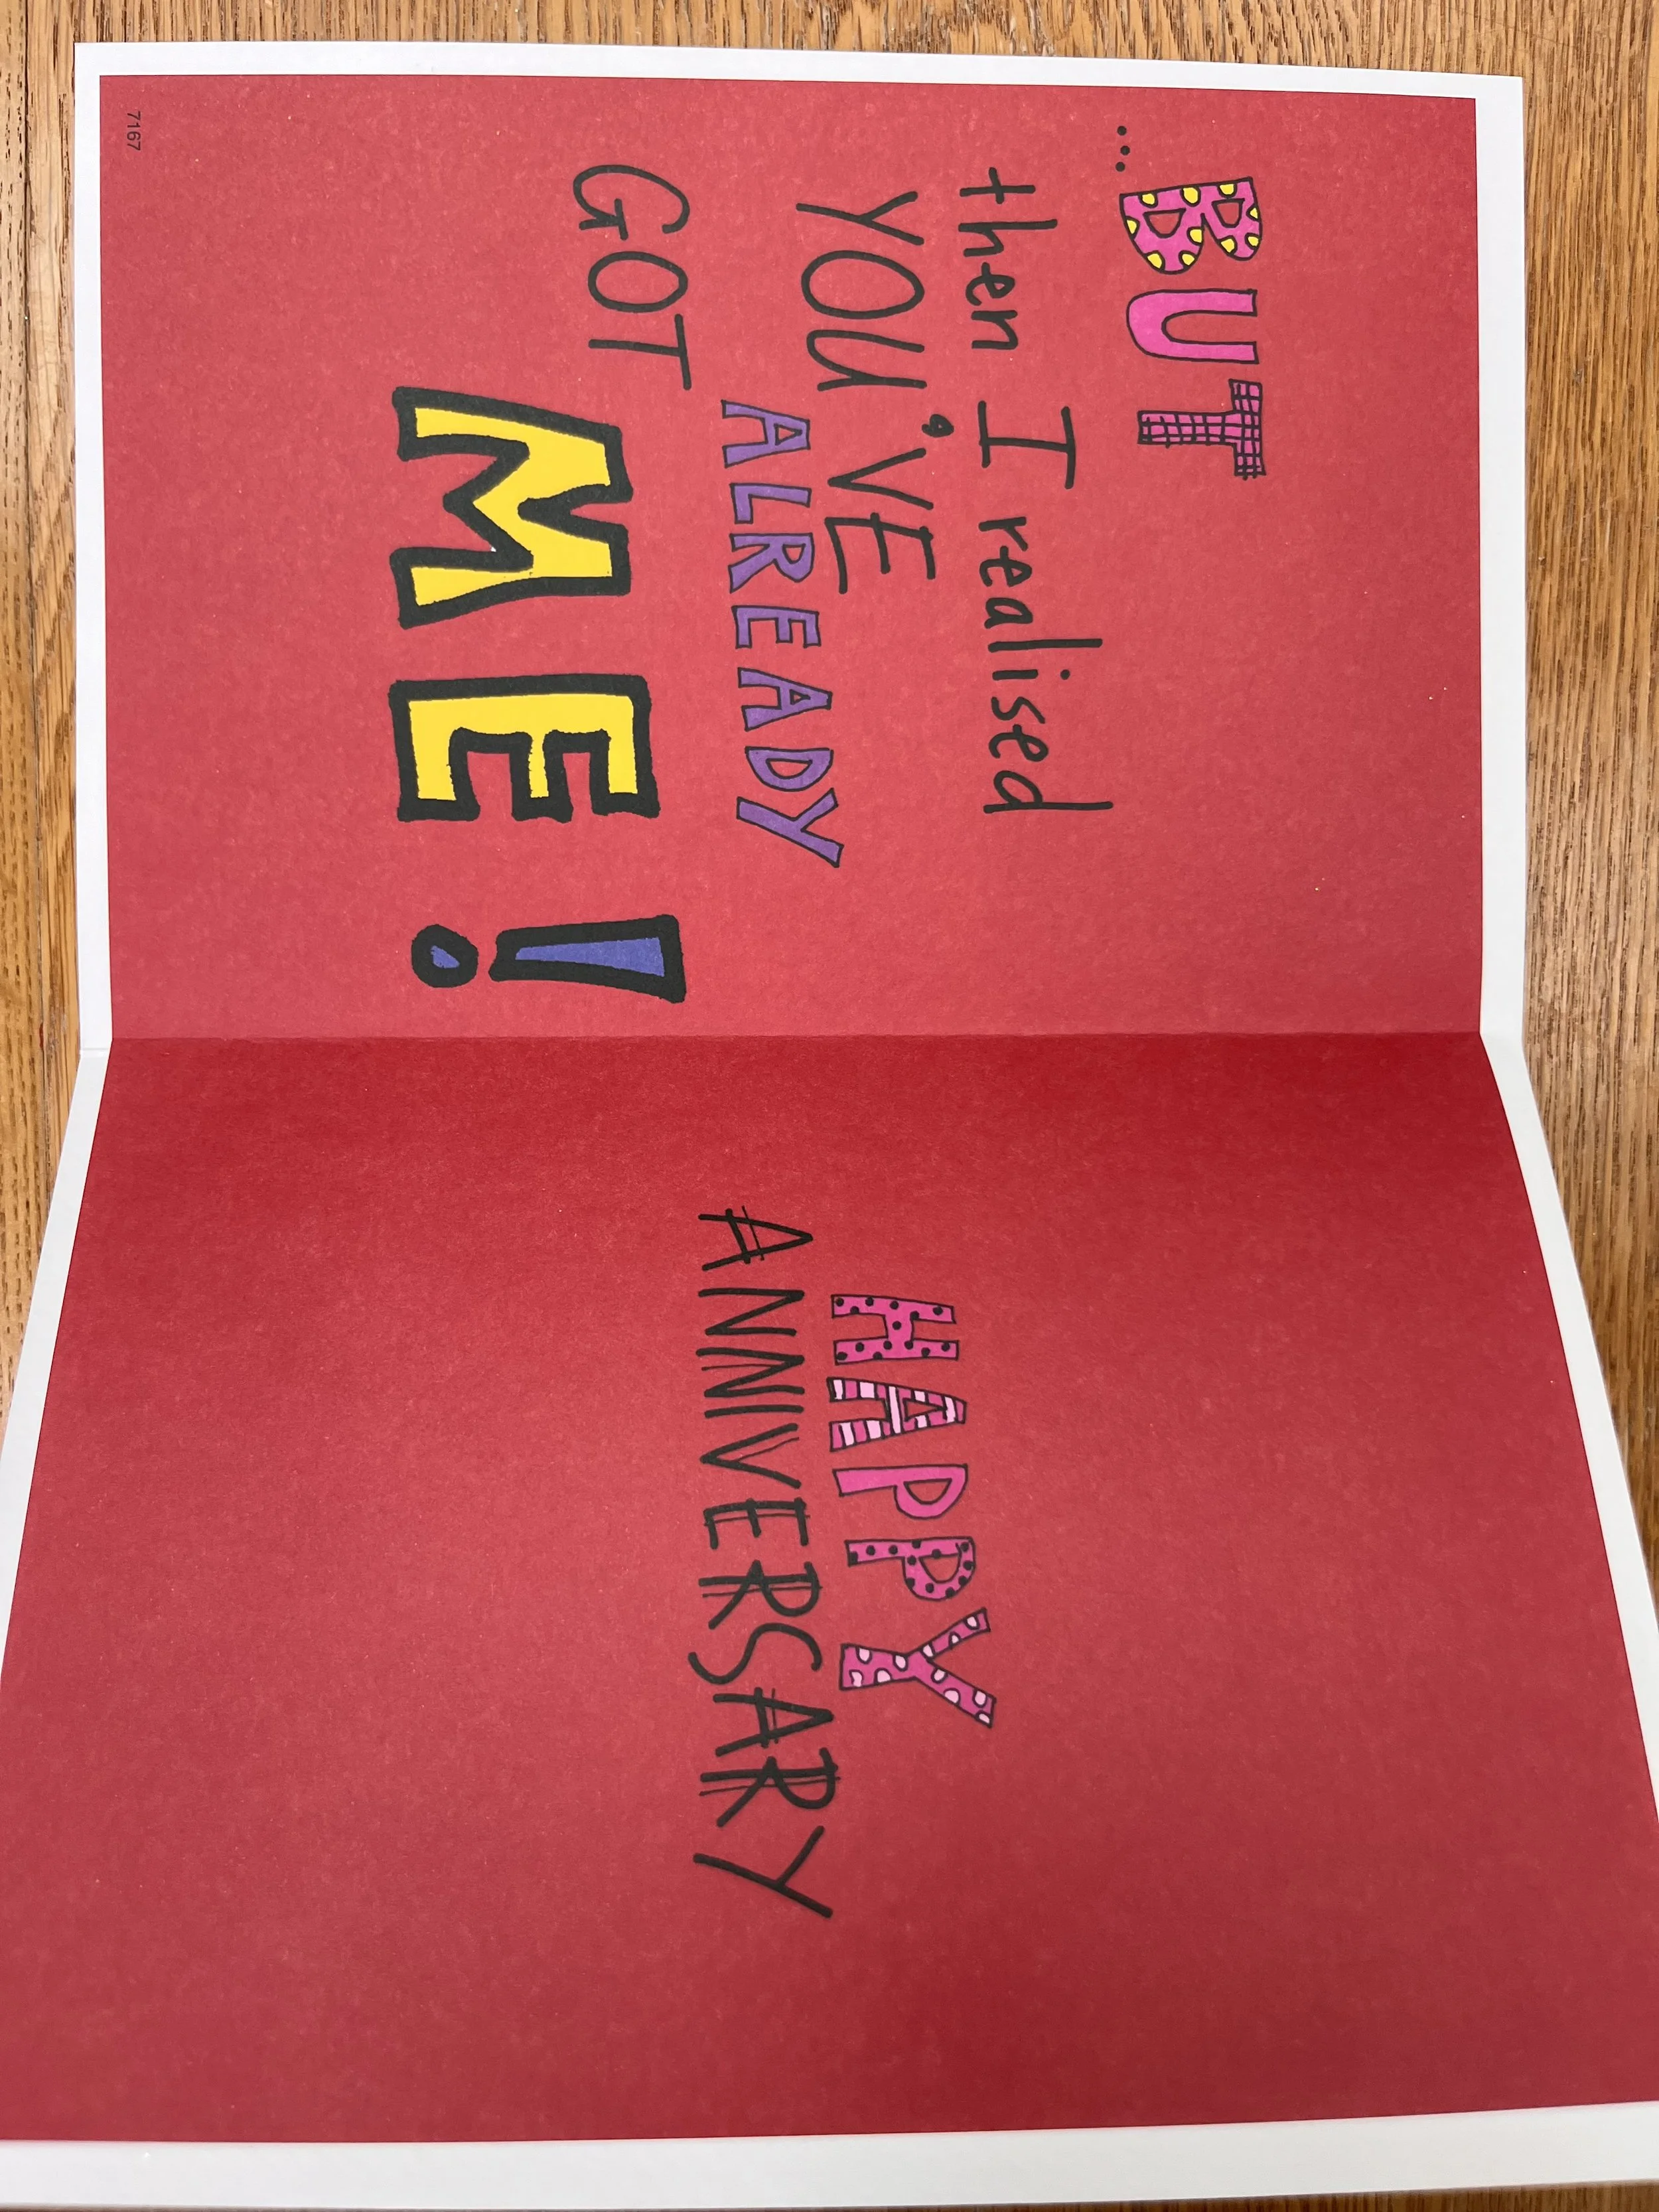 ...BUT
then I realised
YOU'VE
ALREADY
GOT
ME!
7167
HAPPY
ANNIVERSARY